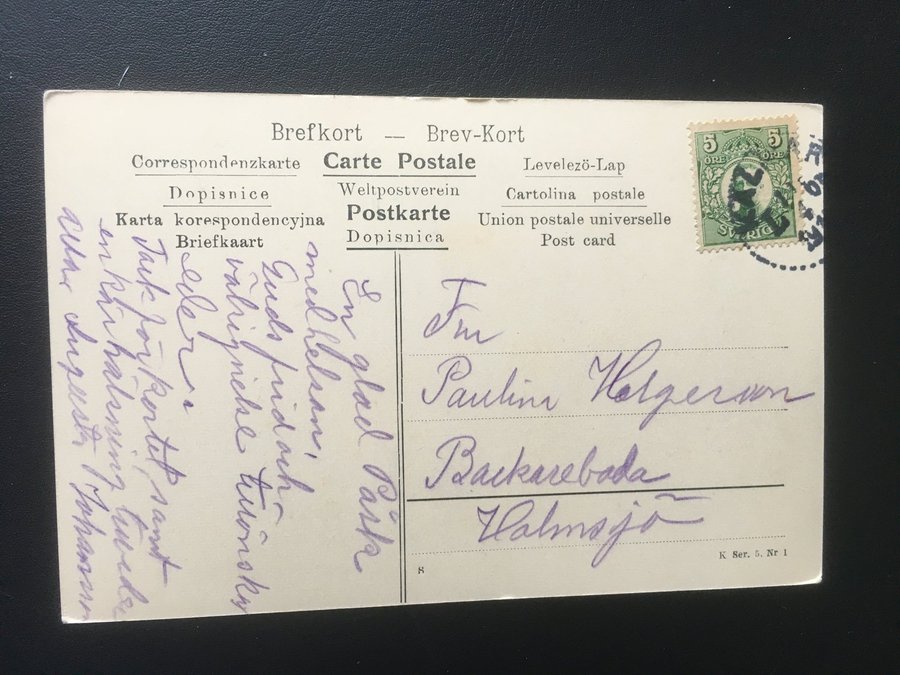 Brefkort — Brev-Kort
Correspondenzkarte Carte Postale Levelező-Lap
Dopisnice Weltpostverein Cartolina postale
Karta korespondencyjna Postkarte Union postale universelle
Briefkaart Dopisnica Post card
5 5
ÖRE ÖRE
SVERIGE
En glad Påsk
medhelsan,
Guds frid och
välsignelse tillönskas
eder
Tack för kortet samt
en kär hälsning till eder
alla Augusta Johansson
Fru
Paulina Helgesson
Backareboda
Holmsjö
S
K Ser. 5. Nr 1